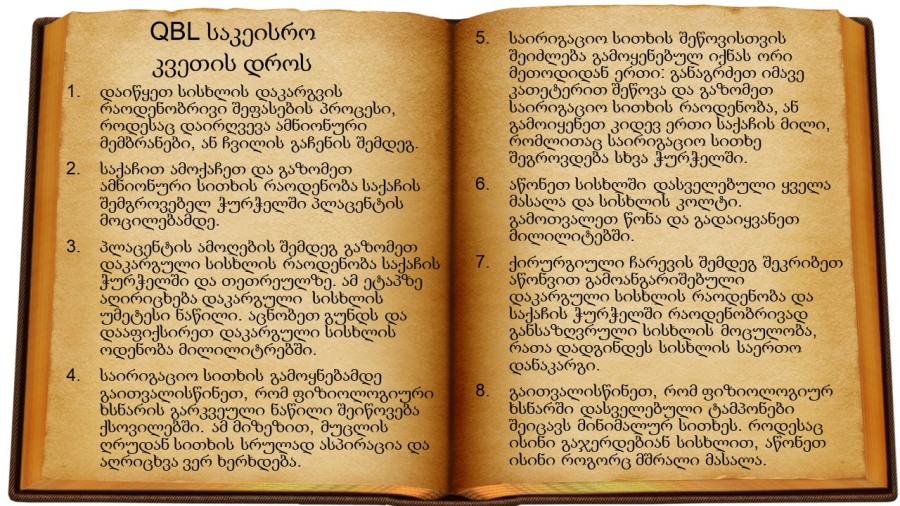 QBL საკეისრო
კვეთის დროს
1. დაიწყეთ სისხლის დაკარგვის
რაოდენობრივი შეფასების პროცესი,
როდესაც დაირღვევა ამნიონური
მემბრანები, ან ჩვილის გაჩენის შემდეგ.
2. საქაჩით ამოქაჩეთ და გაზომეთ
ამნიონური სითხის რაოდენობა საქაჩის
შემგროვებელ ჭურჭელში პლაცენტის
მოცილებამდე.
3. პლაცენტის ამოღების შემდეგ გაზომეთ
დაკარგული სისხლის რაოდენობა საქაჩის
ჭურჭელში და თეთრეულზე. ამ ეტაპზე
აღირიცხება დაკარგული სისხლის
უმეტესი ნაწილი. აცნობეთ გუნდს და
დააფიქსირეთ დაკარგული სისხლის
ოდენობა მილილიტრებში.
4. საირიგაციო სითხის გამოყნებამდე
გაითვალისწინეთ, რომ ფიზიოლოგიური
ხსნარის გარკვეული ნაწილი შეიწოვება
ქსოვილებში. ამ მიზეზით, მუცლის
ღრუდან სითხის სრულად ასპირაცია და
აღრიცხვა ვერ ხერხდება.
5. საირიგაციო სითხის შეწოვისთვის
შეიძლება გამოყენებულ იქნას ორი
მეთოდიდან ერთი: განაგრძეთ იმავე
კათეტერით შეწოვა და გაზომეთ
საირიგაციო სითხის რაოდენობა, ან
გამოიყენეთ კიდევ ერთი საქაჩის მილი,
რომლითაც საირიგაციო სითხე
შეგროვდება სხვა ჭურჭელში.
6. აწონეთ სისხლში დასველებული ყველა
მასალა და სისხლის კოლტი.
გამოთვალეთ წონა და გადაიყვანეთ
მილილიტებში.
7. ქირურგიული ჩარევის შემდეგ შეკრიბეთ
აწონვით გამოანგარიშებული
დაკარგული სისხლის რაოდენობა და
საქაჩის ჭურჭელში რაოდენობრივად
განსაზღვრული სისხლის მოცულობა,
რათა დადგინდეს სისხლის საერთო
დანაკარგი.
8. გაითვალისწინეთ, რომ ფიზიოლოგიურ
ხსნარში დასველებული ტამპონები
შეიცავს მინიმალურ სითხეს. როდესაც
ისინი გაჯერდებიან სისხლით, აწონეთ
ისინი როგორც მშრალი მასალა.